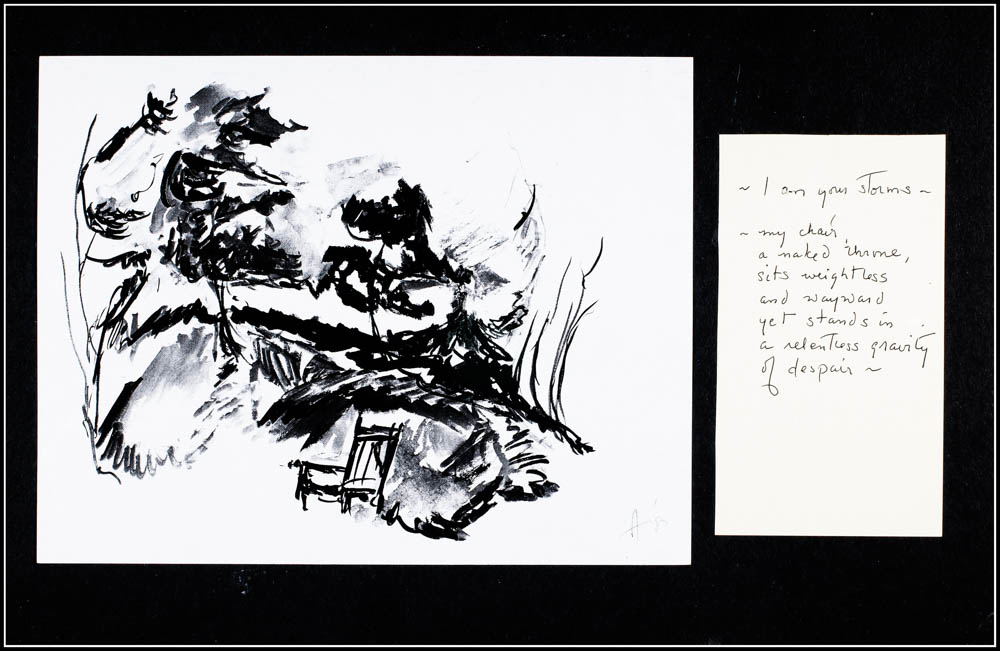 ~ I am your storms ~
~ my chair
a naked throne,
sits weightless
and wayward
yet stands in
a relentless gravity
of despair ~
A